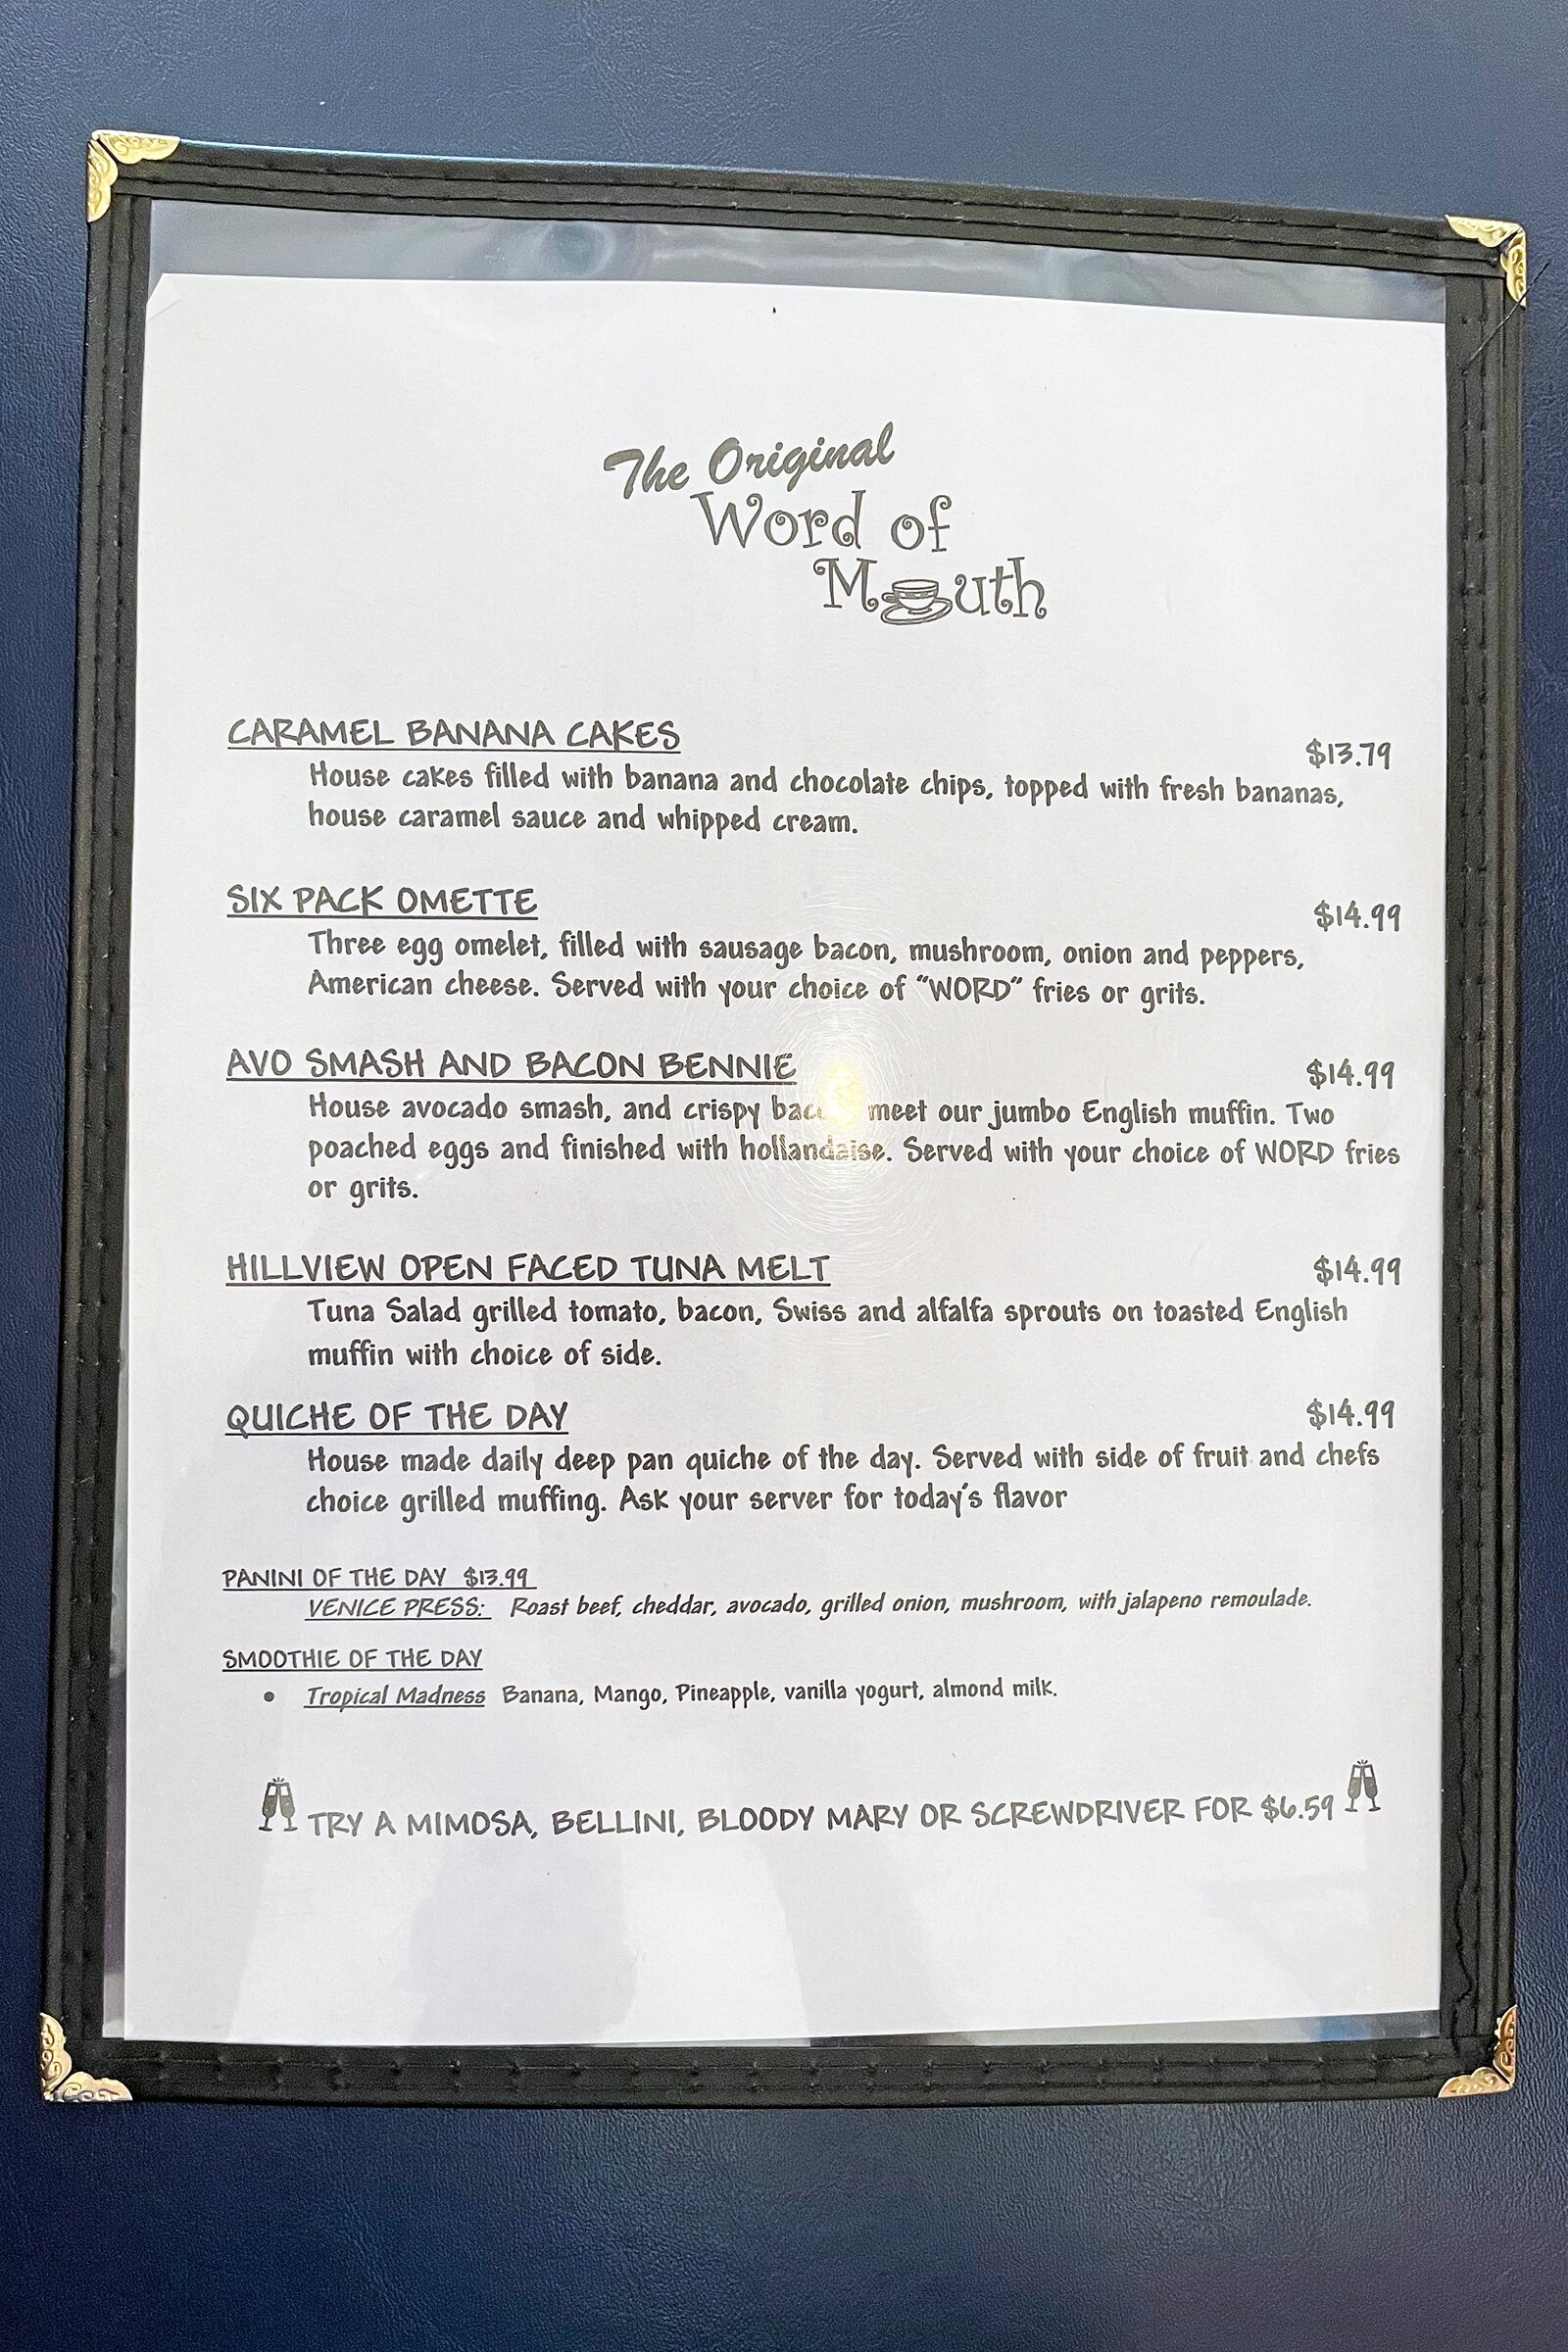 The Original
Word of
Mouth
CARAMEL BANANA CAKES $13.79
House cakes filled with banana and chocolate chips, topped with fresh bananas,
house caramel sauce and whipped cream.
SIX PACK OMETTE $14.99
Three egg omelet, filled with sausage bacon, mushroom, onion and peppers,
American cheese. Served with your choice of "WORD" fries or grits.
AVO SMASH AND BACON BENNIE $14.99
House avocado smash, and crispy bacon meet our jumbo English muffin. Two
poached eggs and finished with hollandaise. Served with your choice of WORD fries
or grits.
HILLVIEW OPEN FACED TUNA MELT $14.99
Tuna Salad grilled tomato, bacon, Swiss and alfalfa sprouts on toasted English
muffin with choice of side.
QUICHE OF THE DAY $14.99
House made daily deep pan quiche of the day. Served with side of fruit and chefs
choice grilled muffing. Ask your server for today's flavor
PANINI OF THE DAY $13.99
VENICE PRESS: Roast beef, cheddar, avocado, grilled onion, mushroom, with jalapeno remoulade.
SMOOTHIE OF THE DAY
• Tropical Madness Banana, Mango, Pineapple, vanilla yogurt, almond milk.
TRY A MIMOSA, BELLINI, BLOODY MARY OR SCREWDRIVER FOR $6.59